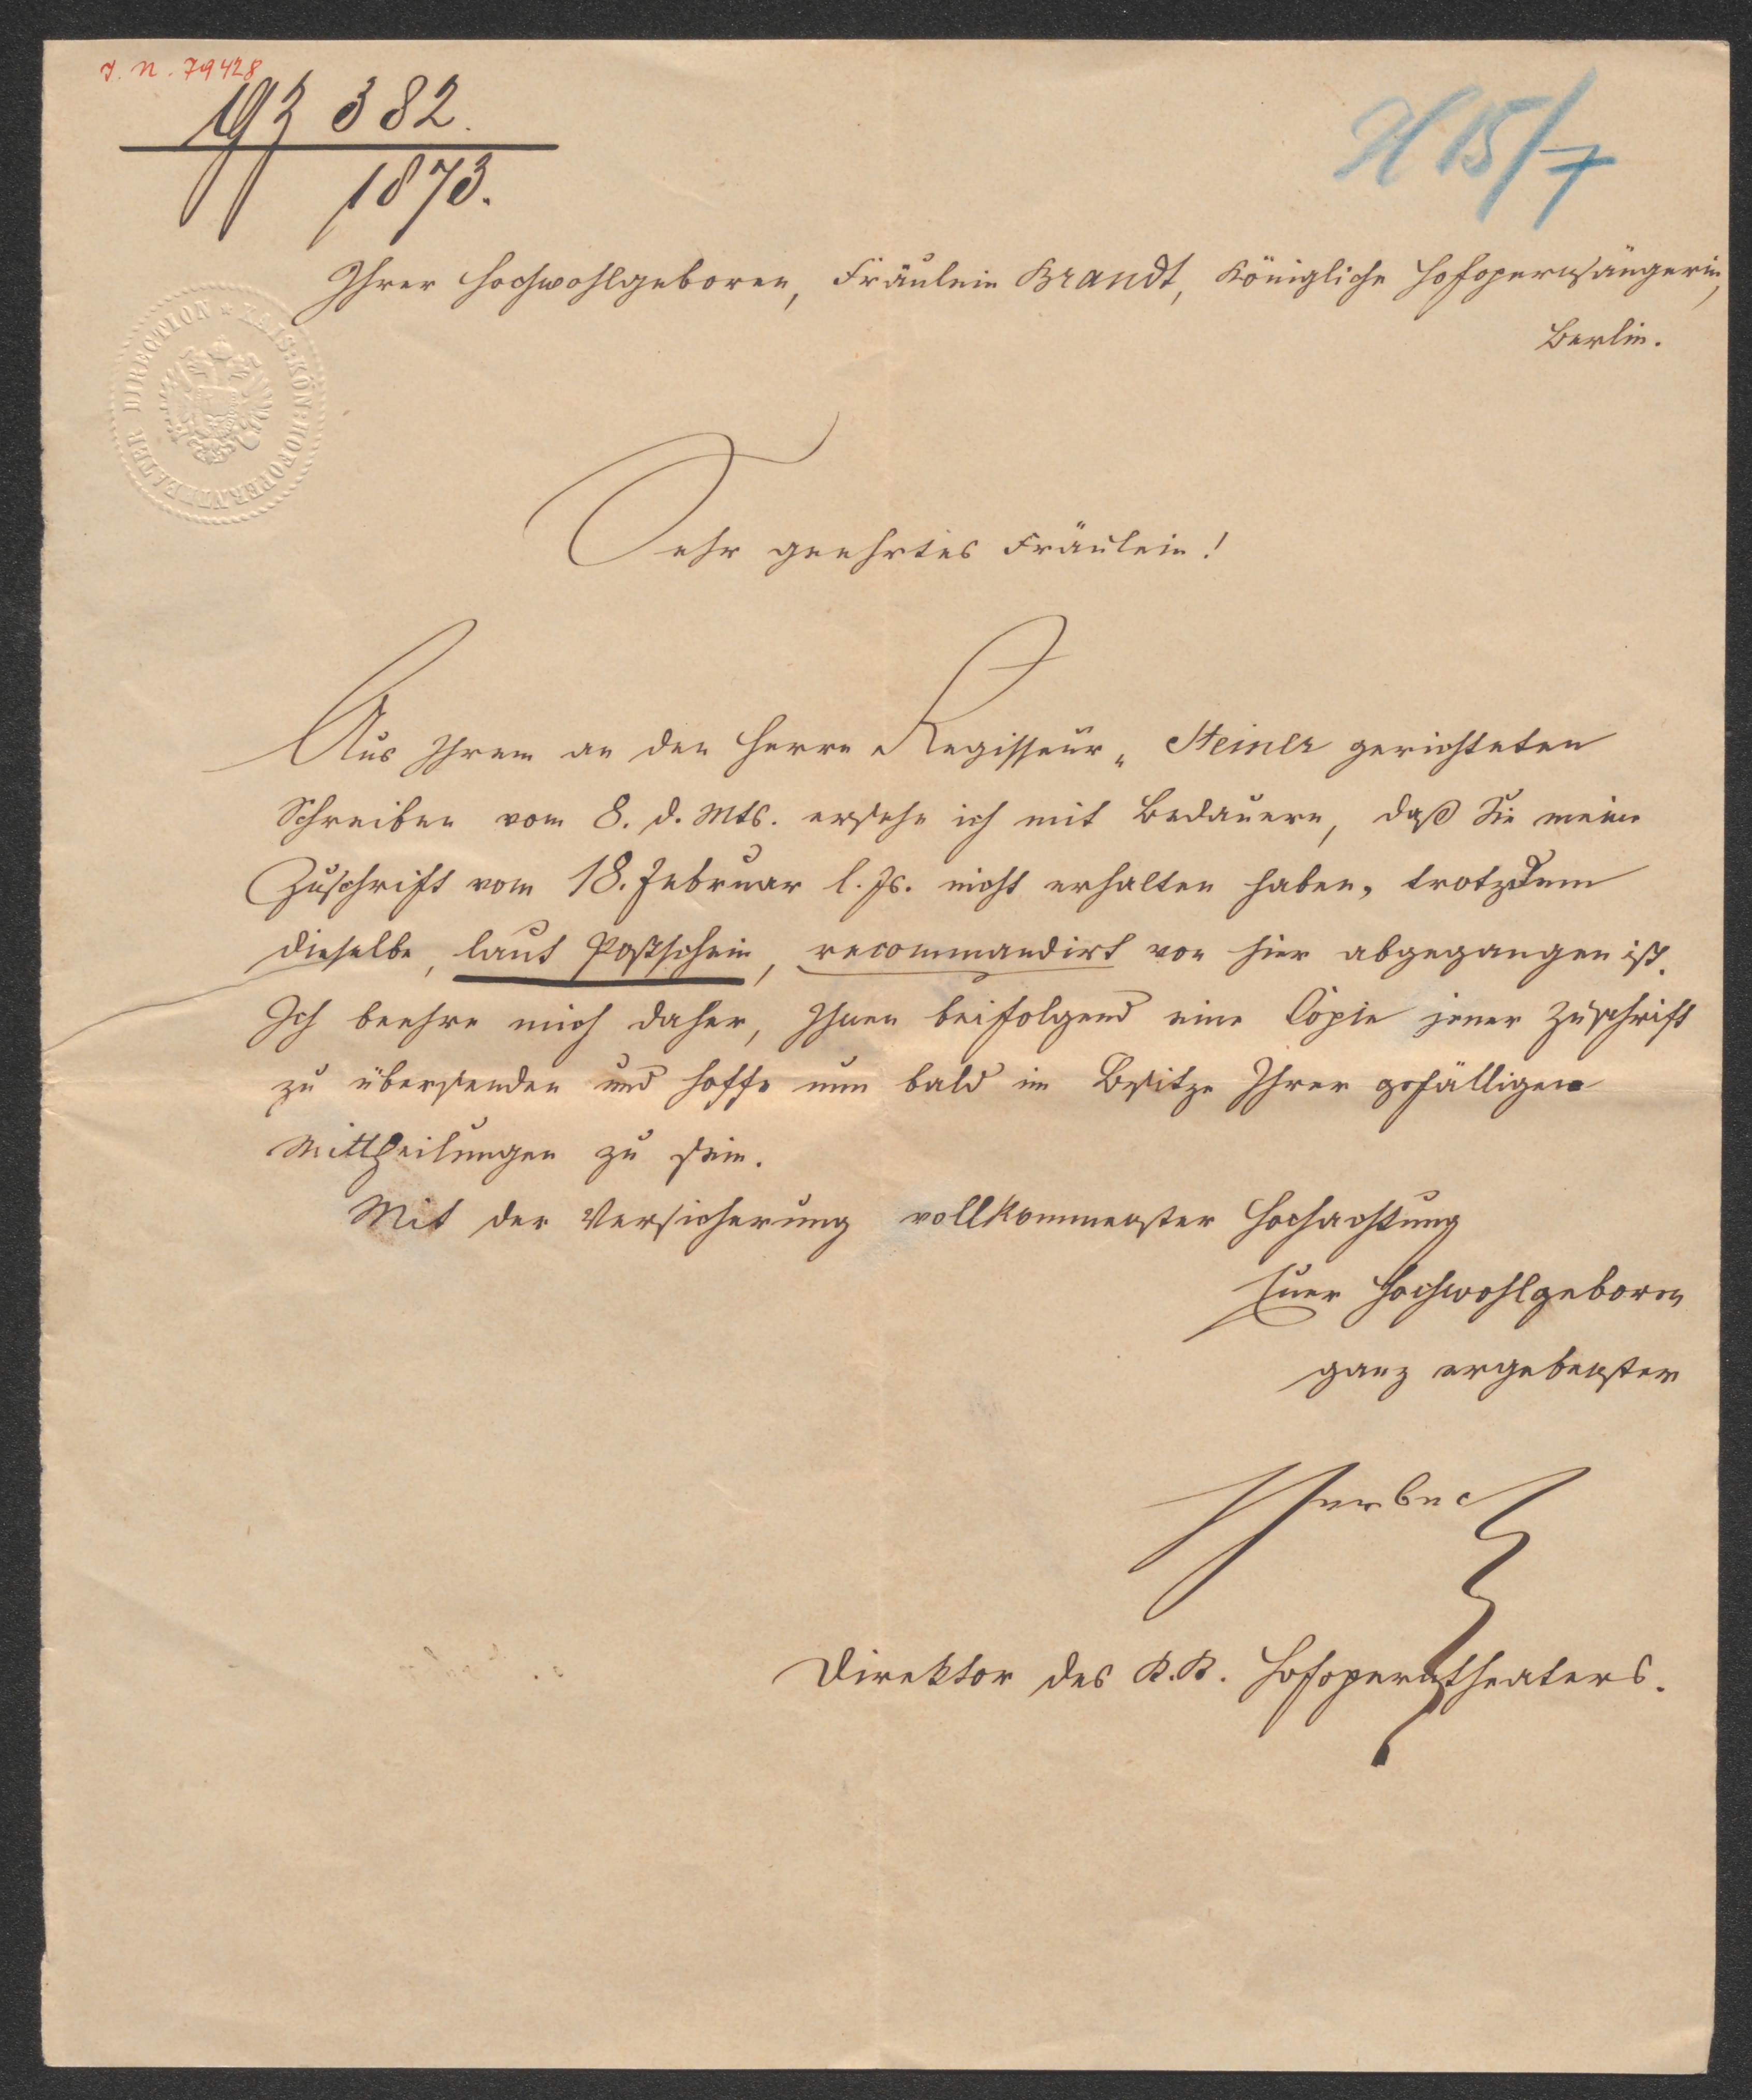 J. N. 79428
382.
1873.
H 15/7
Ihrer Hochwohlgeboren, Fräulein Brandt, Königliche Hofopernsängerin,
Berlin.
DIRECTION * KAIS: KÖN: HOFOPERNTHEATER
Sehr geehrtes Fräulein!
Aus Ihrem an den Herrn Regisseur „ Steiner gerichteten
Schreiben vom 8. d. Mts. ersehe ich mit Bedauern, daß Sie meine
Zuschrift vom 18. Februar l. Js. nicht erhalten haben, trotzdem
dieselbe, laut Postschein, recommandirt von hier abgegangen ist.
Ich beehre mich daher, Ihnen beifolgend eine Copie jener Zuschrift
zu übersenden und hoffe nun bald im Besitze Ihrer gefälligen
Mittheilungen zu sein.
Mit der Versicherung vollkommenster Hochachtung
Euer Hochwohlgeboren
ganz ergebenster
Herbeck
Direktor des K. K. Hofoperntheaters.